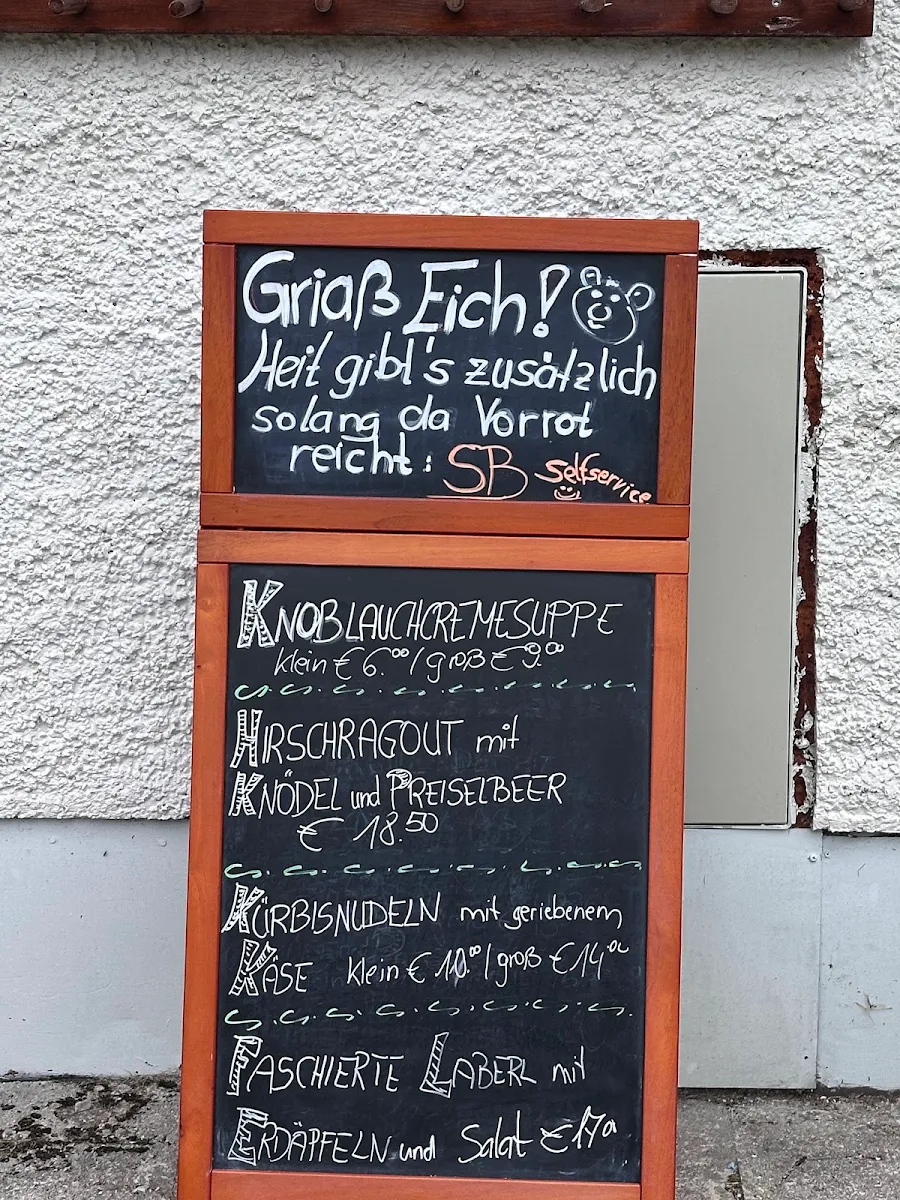 Griaß Eich!
Heit gibt's zusätzlich
solang da Vorrot
reicht: SB Selfservice
KNOBLAUCHCREMESUPPE
klein € 6.00 / groß € 9.00
HIRSCHRAGOUT mit
KNÖDEL und PREISELBEER
€ 18.50
KÜRBISNUDELN mit geriebenem
KÄSE klein € 10.00 / groß € 14.00
FASCHIERTE LABERL mit
ERDÄPFELN und Salat € 17.00